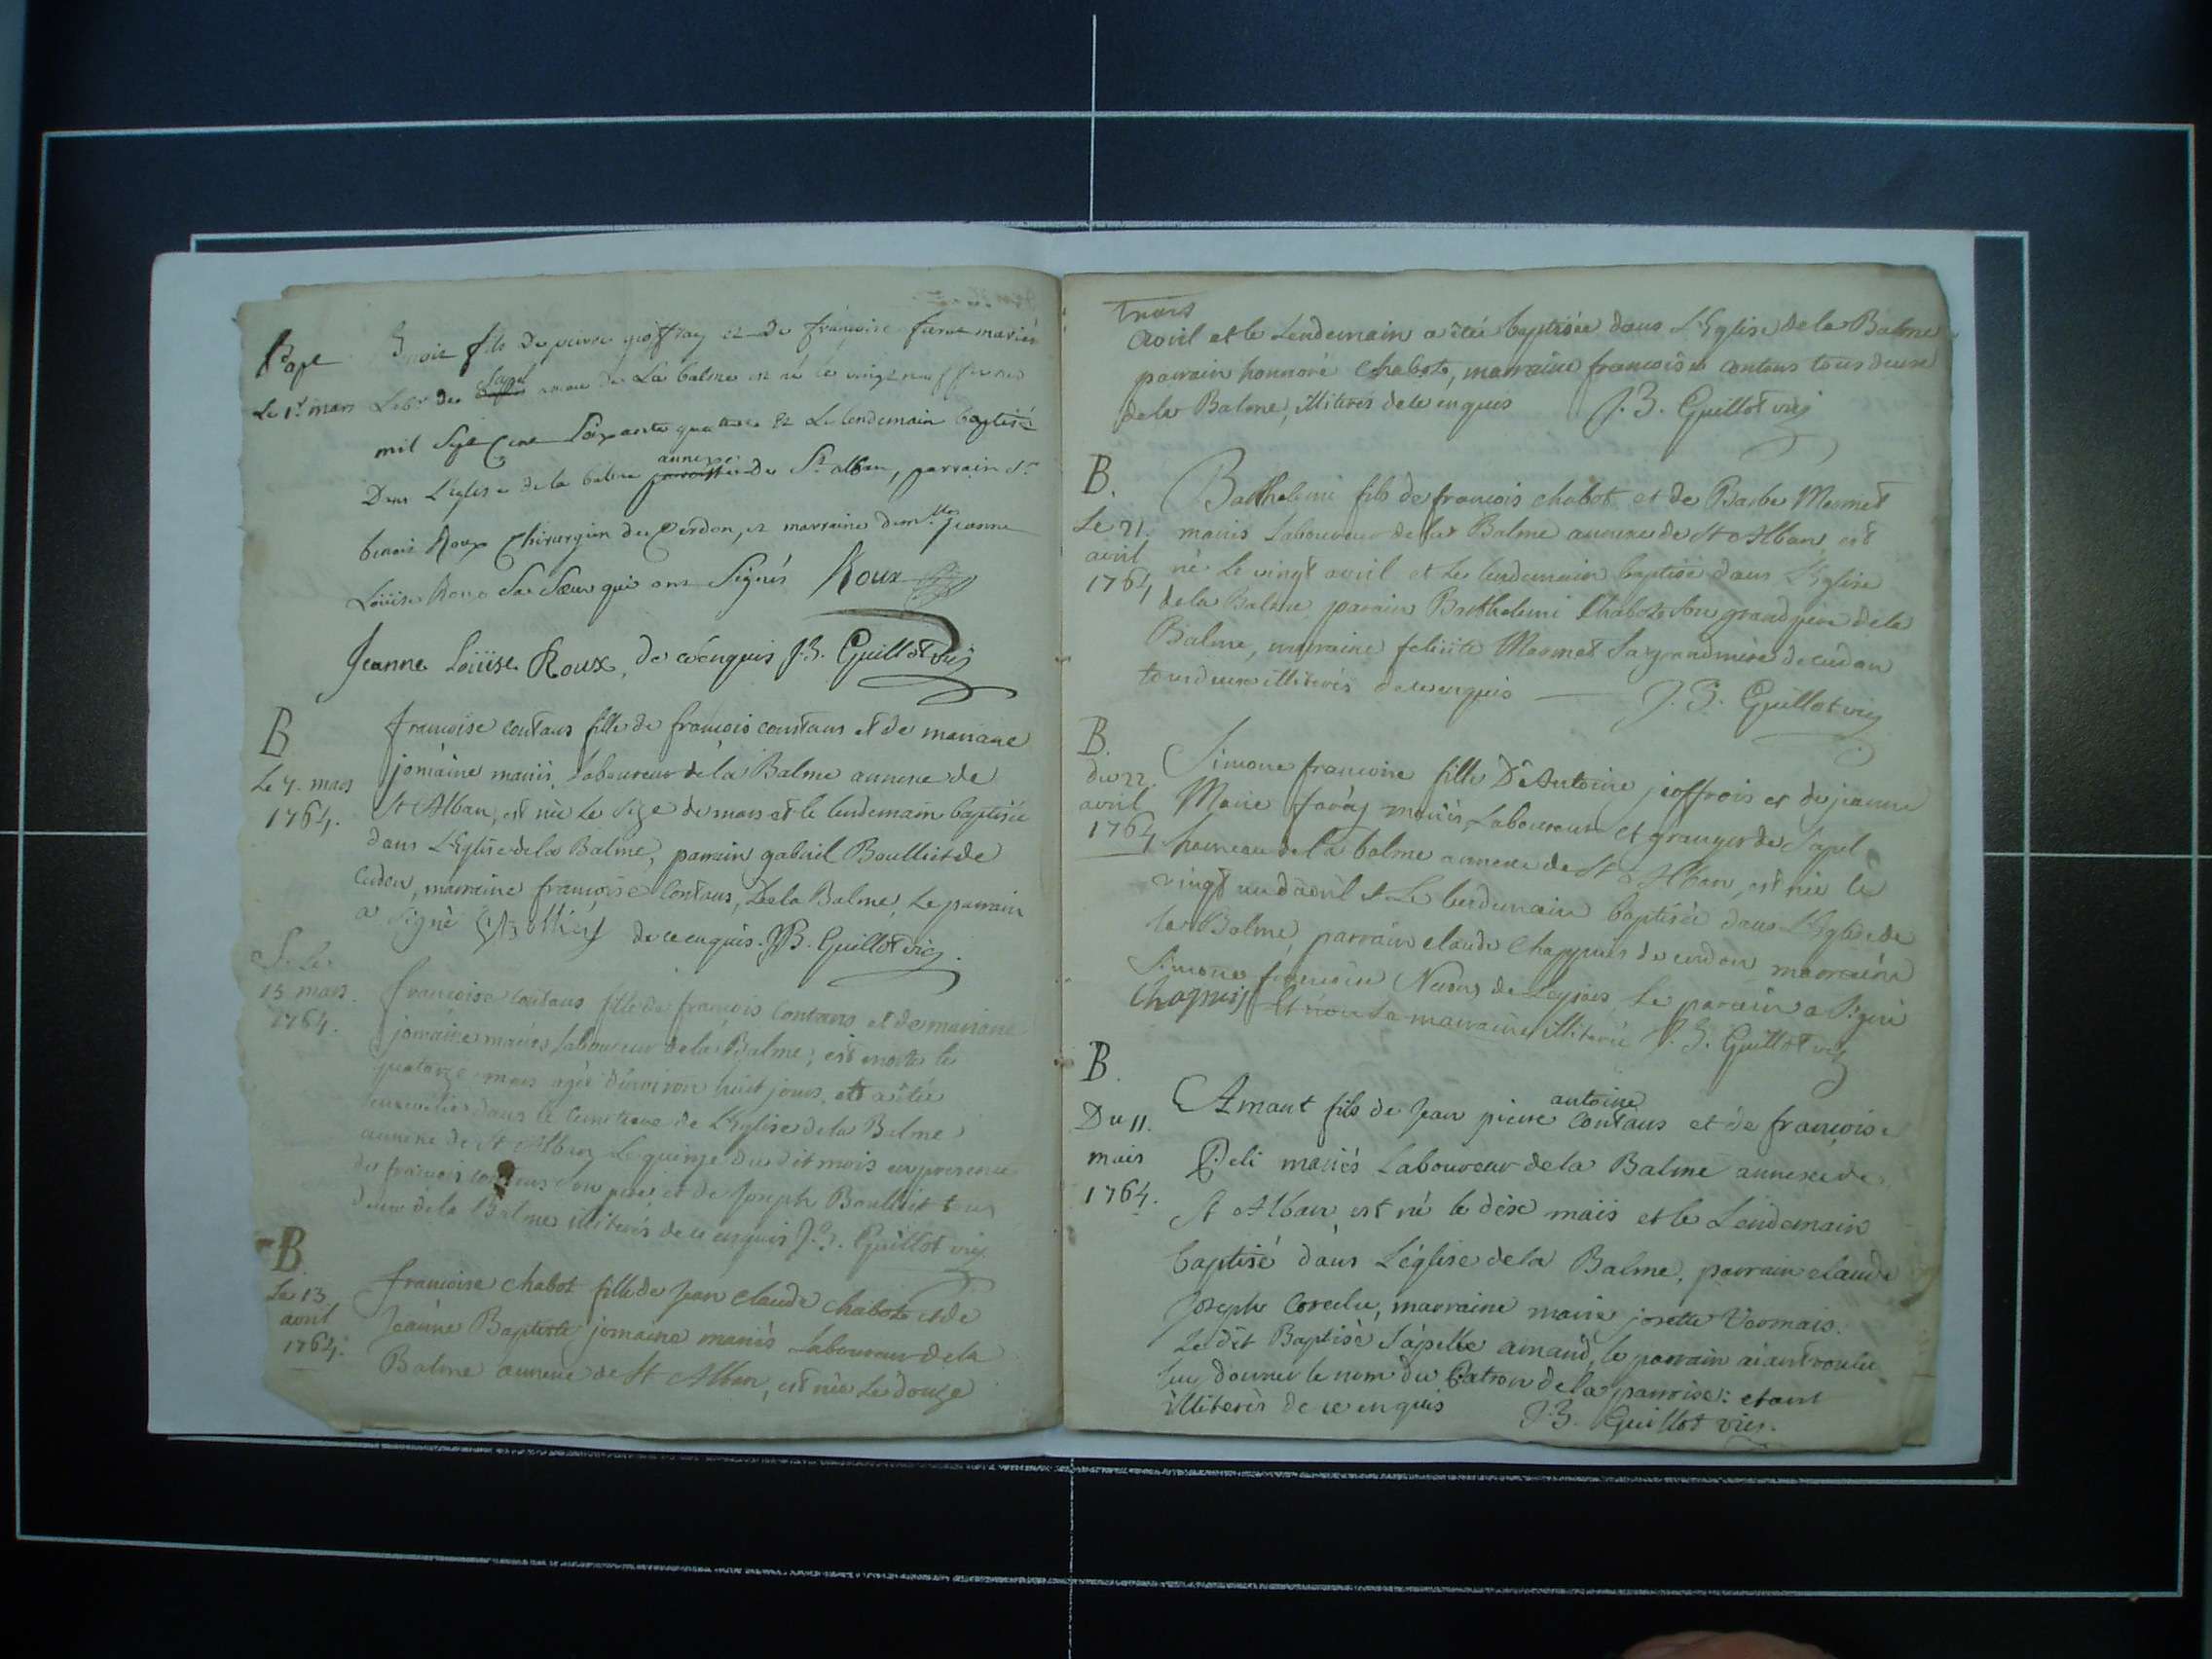 Bapt
Le 1r. mars
Benoit fils de pierre gioffray et de françoise mariés
Lab.r de Sapel anexe de La balme est né le vingt neuf fevrier
mil Sept Cent Soixante quattre et Le lendemain baptisé
Dans L'eglise de la balme annexe de St. alban, parrain Sr.
benoit Roux Chirurgien de Cerdon, et marraine dem.lle jeanne
Loüise Roux Sa Sœur qui ont Signés Roux
Jeanne Loüise Roux, de ce enquis J.B. Guillot vic
B
Le 7. mars
1764.
francoise contans fille de francois constans et de mariane
jomaine mariés, Laboureur de la Balme annexe de
St Alban, est née Le Size de mars et le lendemain baptisée
dans L'Eglise de la Balme, parrain gabriel Boulliet de
Cerdon, marraine françoise Contans, De la Balme, Le parrain
a signé de ce enquis. JB. Guillot vic.
S. Le
15 mars.
1764.
francoise contans fille de francois Contans et de mariane
jomaine mariés Laboureur de la Balme, est morte le
quatorze mars agée d'environ huit jours, et a été
ensevelie dans le Cimetiere de L'Eglise de la Balme
annexe de St Alban Le quinze du dit mois en presence
de francois contans Son pere, et de Joseph Boulliet tous
deux de la Balme illiterés de ce enquis J.B. Guillot vic
B
Le 13
avril
1764.
francoise chabot fille de Jean Claude chabot et de
Jeanne Baptiste jomaine mariés Laboureur de la
Balme annexe de St Alban, est née Le douze
Trois
avril et le Lendemain a été baptisée dans L'Eglise de la Balme
parrain honnoré Chabot, marraine francoise contans tous deux
de la Balme, illiterés de ce enquis J.B. Guillot vic
B.
Le 21.
avril
1764
Barthelemi fils de francois chabot et de Barbe Mermet
mariés Laboureur de la Balme annexe de St Alban, est
né Le vingt avril et Le lendemain baptisé dans L'Eglise
de la Balme, parain Barthelemi Chabot Son grand pere de la
Balme, marraine Mermet Sa grandmère de cerdon
tous deux illiterés de ce enquis J.B. Guillot vic
B.
du 22.
avril
1764
Simone francoise fille D'Antoine jeoffrois et de jeanne
Marie favay mariés, Laboureur et granger de Sapel
hameau de la balme annexe de St Alban, est née le
vingt un d'avril et Le lendemain baptisée dans L'Eglise de
la Balme, parrain claude Chappuis de cerdon marraine
Simone francoise de Leyssas Le parrain a Signé
Chapuis Et non La marraine illiterée J.B. Guillot vic
B.
Du 11.
mais
1764.
Amant fils de Jean pierre antoine Contans et de francoise
Peli mariés Laboureur de la Balme annexe de
St Alban, est né le dix mais et le Lendemain
baptisé dans L'église de la Balme, parrain claude
Joseph marraine marie josette Vormais.
Le dit Baptisé S'apelle amand, le parrain aiant voulu
luy donner le nom du Patron de la parroise: etant
illiterés de ce enquis J.B. Guillot vic.